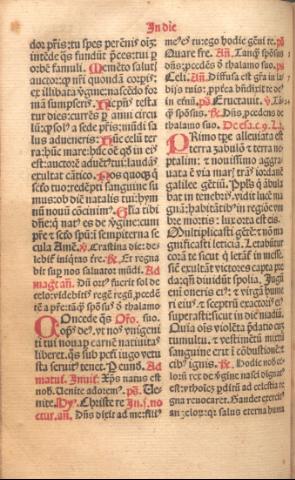 In die
dor pr̃is: tu spes perẽnis oĩz
intẽde q̃s fundũt p̃ces: tui p
orbẽ famuli. Memẽto salut͛
auctor: ꝙ nr̃i quondã corpis:
ex illibata v̓gine: nascẽdo for
mã sumpseris. Hic p̃ñs testa
tur dies: currẽs p anni circu
lũ: ꝙ sol͛ a sede pr̃is: mũdi sa
lus adueneris:
est: auctorẽ aduẽt͛ tui: laudãs
exultat cãtico.
scõ tuo: redẽpti sanguine su
mus: ob diẽ natalis tui: hym
nũ nouũ cõcinim͛. Gl̃ia tibi
dñe: q̃ nat͛ es de v̓gine: cum
pr̃e & scõ spũ: ĩ sempiterna se
cula Amẽ. v̓. Crastina die: de
lebit͛ iniq̃tas t̃re. R̃. Et regna
bit sup nos saluator mũdi. Ad
mag͛t añ. Dũ ort͛ fuerit sol de
celo: videbit͛ regẽ regũ: pcedẽ
tẽ a pr̃e: tãq̃ spõsus de thalamo
suo.
Concede q̃s Oro͂.
op̃s de͛: vt nos vnigenit
ti tui noua p carnẽ natiuitas
liberet: q̃s sub pctĩ iugo vetu
sta seruit͛ tenet. P eund. Ad
matut. Inuit. Xp̃s natus est
nob. Venite adorem͛. ps. Ve-
nite. Hy. Christe re In. j. no
ctur. añ. Dñs dixit ad me: fili͛
me͛ es tu: ego hodie genui te. ps
Quare fre. Añ. Tanq̃ spõsus
dñs: pcedẽs d thalamo suo. ps
Celi. Añ. Diffusa est gr̃a in la
bijs tuis: ppt̃ea bñdixit te de͛
in etnũ. ps Eructauit. v̓. Tã
q̃ spõsus. R̃. Dñs pcedens de
thalamo suo. De esa. c. 9. L. j.
PRimo tpe alleuiata est
terra zabulõ & terra ne
ptalim: & nouissimo aggra
uata ẽ via mar͛ trãs iordanẽ
galilee gẽtiũ. Ppl͛s q̃ ãbula
bat in tenebr͛: vidit lucẽ ma
gnã: habitãtib͛ in regiõe vm
bre mortis: lux orta est eis.
Multiplicasti gẽtẽ: & nõ ma
gnificasti leticiã. Letabũt͛
corã te sicut q̃ letãt͛ in mess
sẽ: exultãt victores capta pre
da: qñ diuidũt spolia. Jugũ
eni oneris ei͛: & virgã hume
ri ei͛: & sceptrũ exactoris ei͛
superasti: sicut in die madiã
Quia oĩs violẽta p̃datio cũ
tumultu: & vestimẽtũ mixtũ
sanguine erit ĩ cõbustionẽ: &
cib͛ ignis. R̃. Hodie nob ce-
lorũ rex de v̓gine nasci dignat͛
est: vt hoĩẽz pditũ ad celestia re
gna reuocaret. Gaudet exercit͛
angeloꝝ: q̃ salus eterna humã